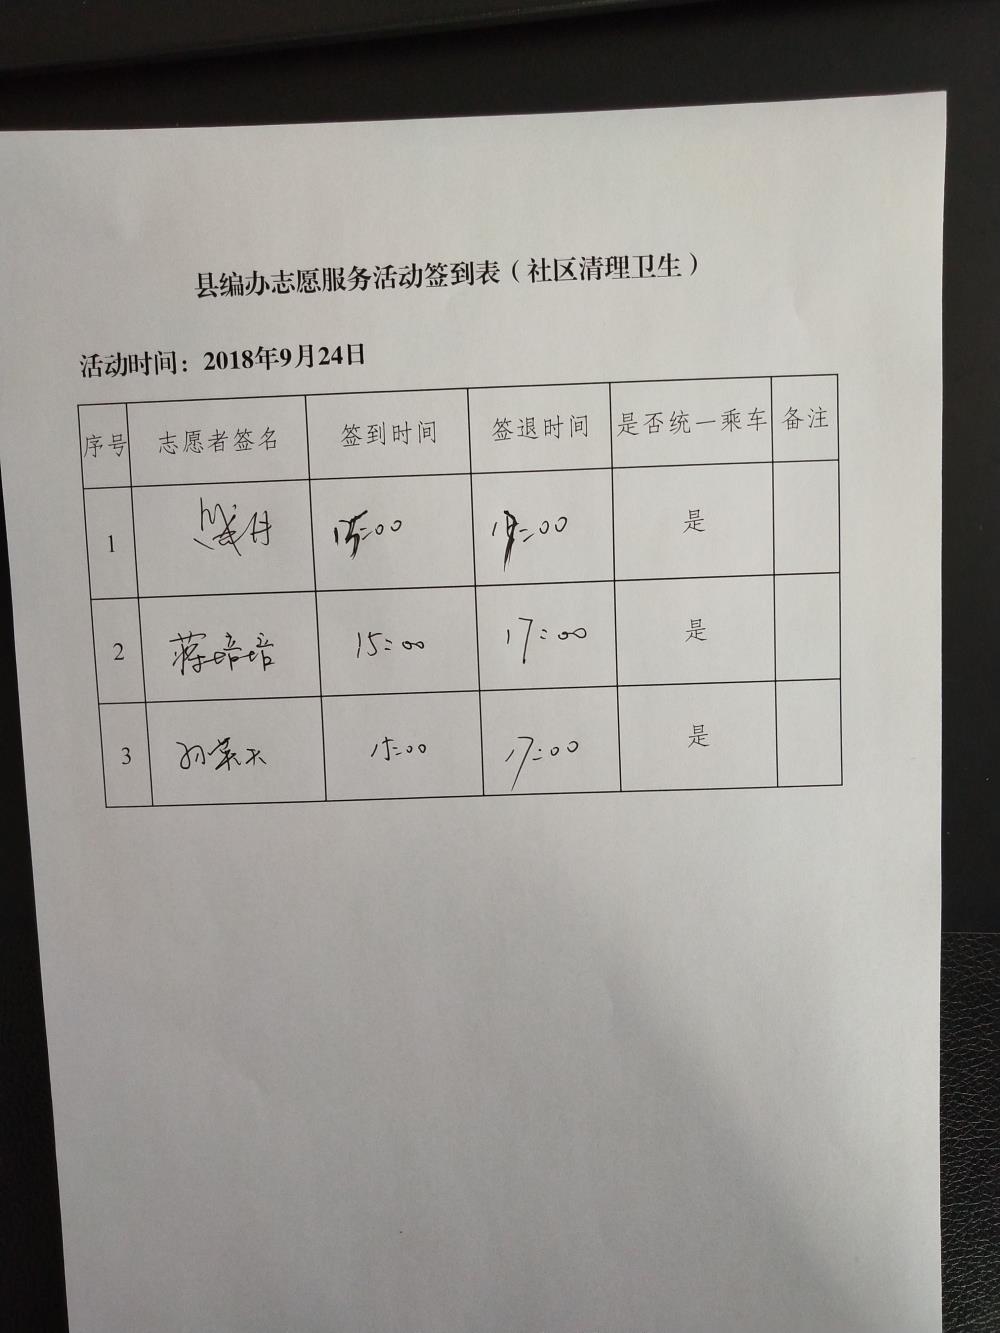 县编办志愿服务活动签到表（社区清理卫生）
活动时间：2018年9月24日
序号 志愿者签名 签到时间 签退时间 是否统一乘车 备注
1 15:00 17:00 是
2 蒋培培 15:00 17:00 是
3 15:00 17:00 是